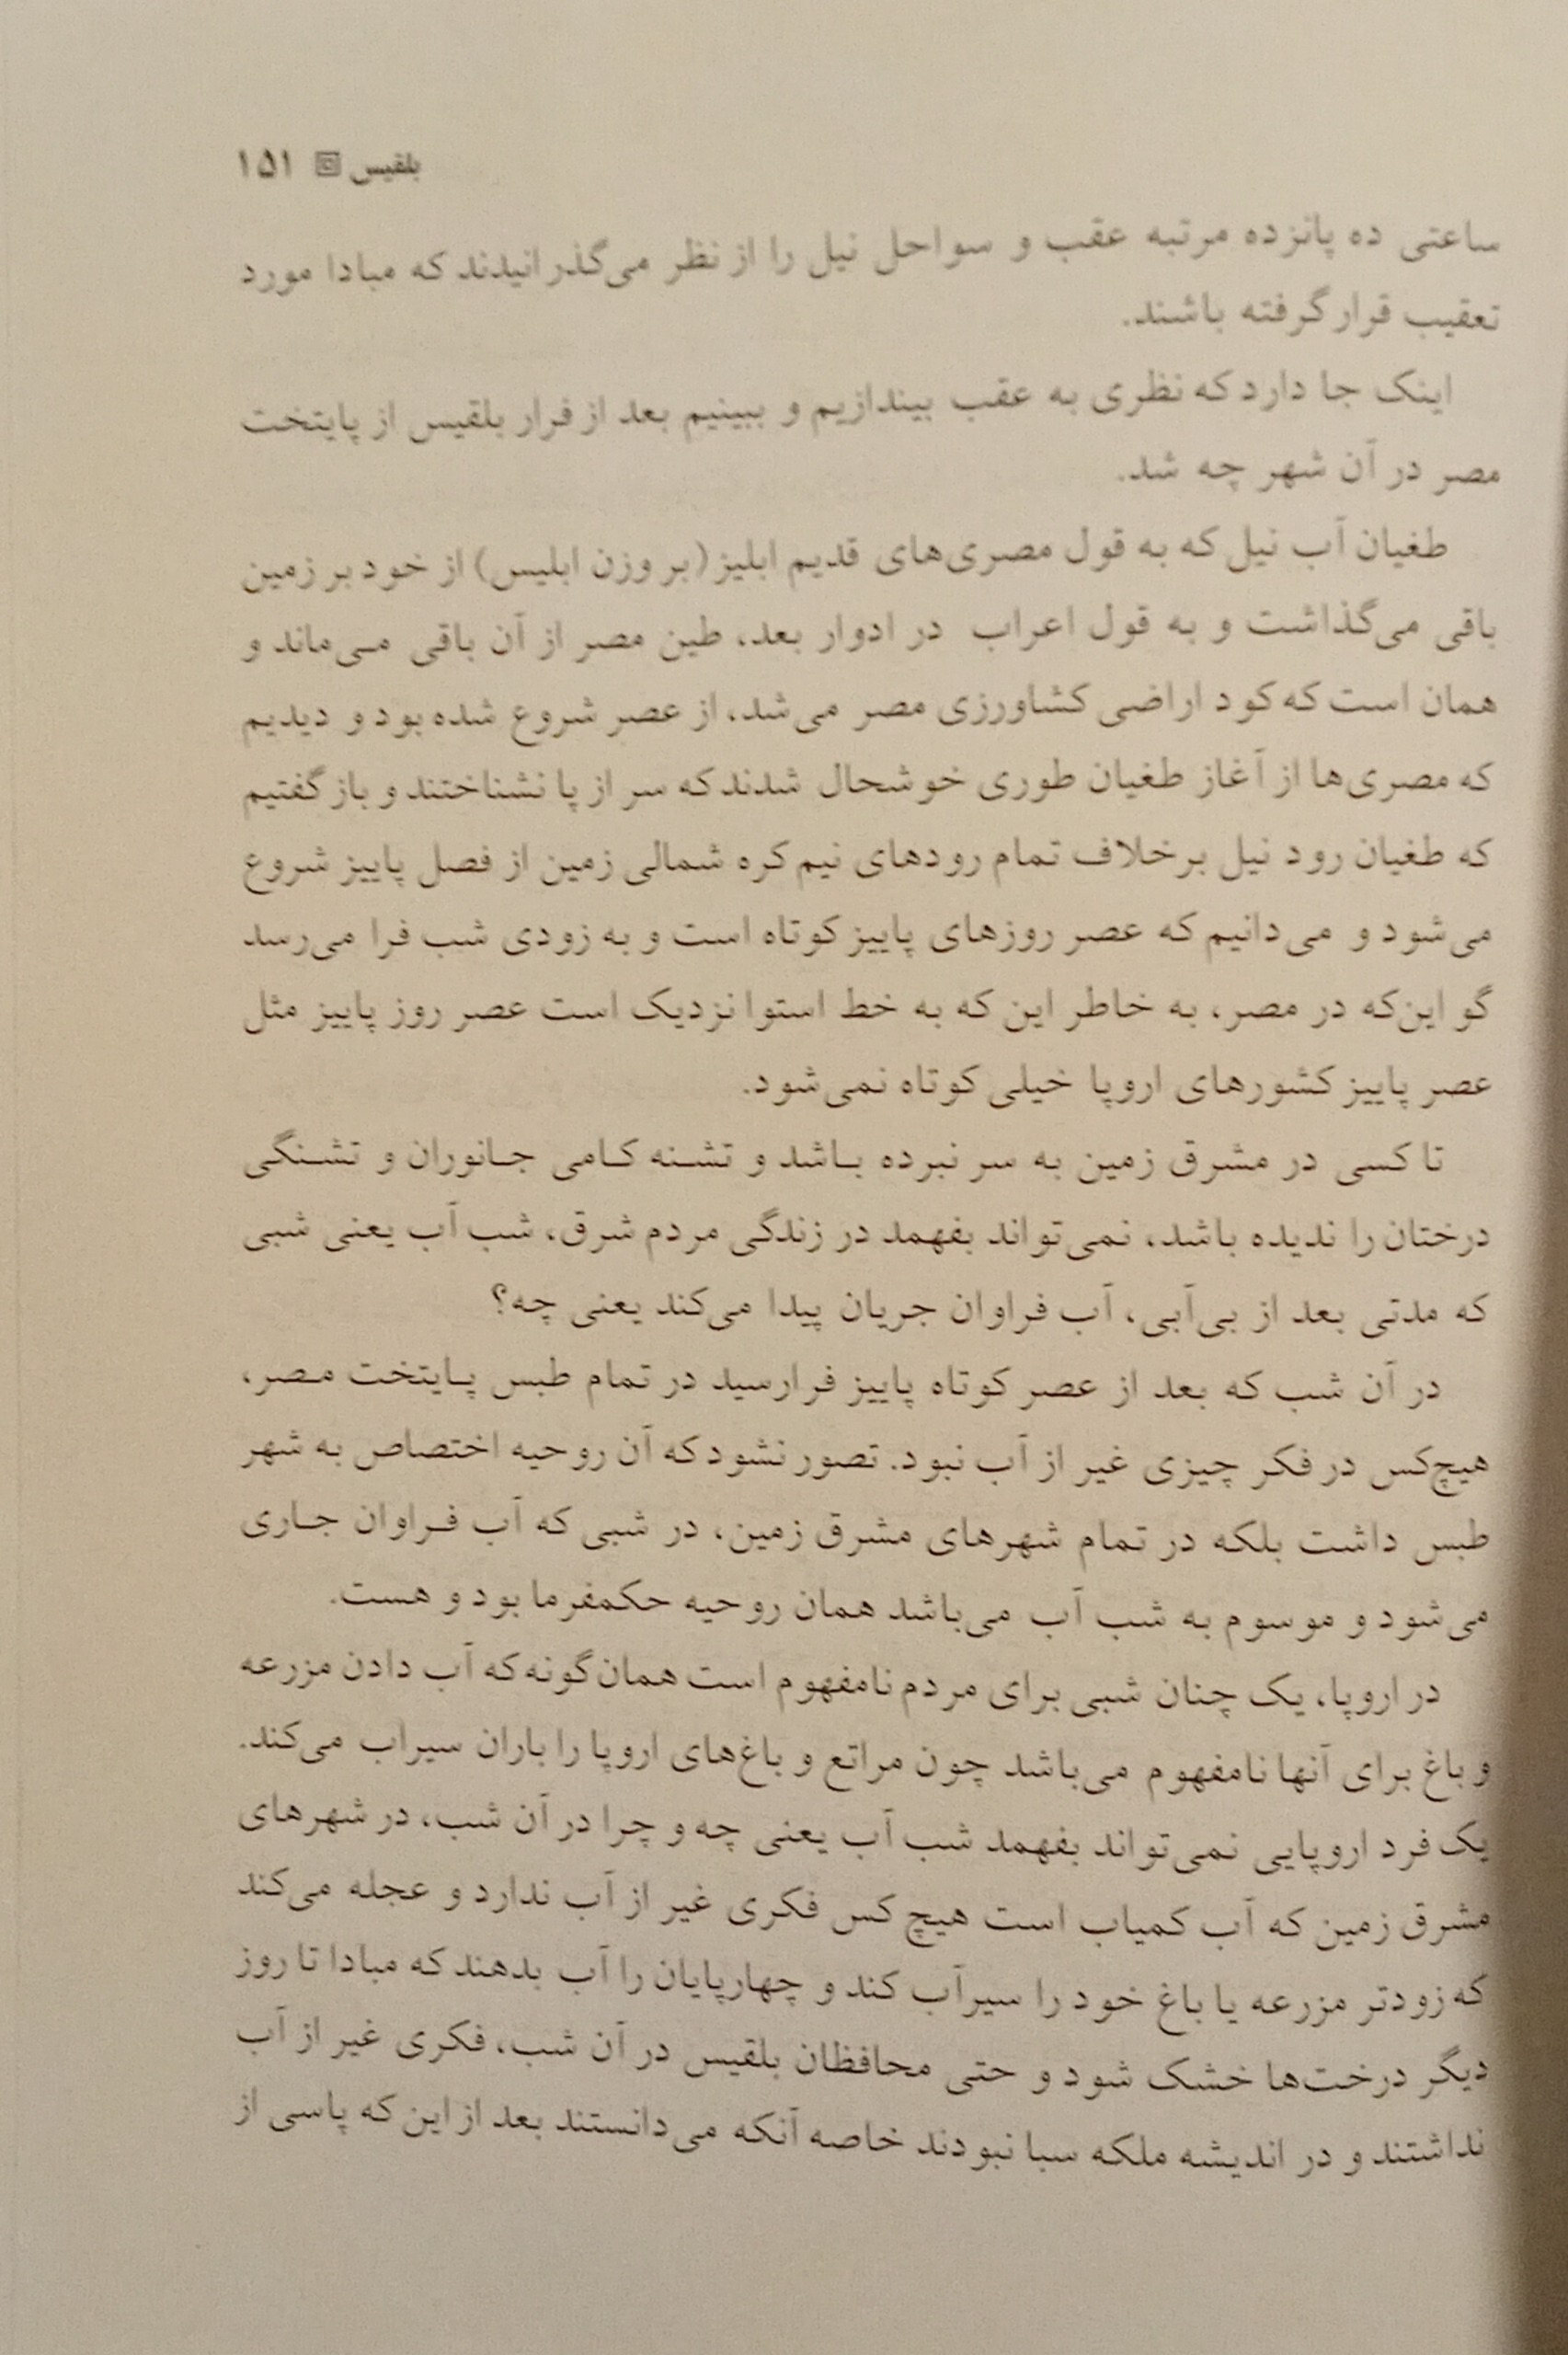 بلقیس ▣ ۱۵۱
ساعتی ده پانزده مرتبه عقب و سواحل نیل را از نظر می‌گذرانیدند که مبادا مورد
تعقیب قرار گرفته باشند.
اینک جا دارد که نظری به عقب بیندازیم و ببینیم بعد از فرار بلقیس از پایتخت
مصر در آن شهر چه شد.
طغیان آب نیل که به قول مصری‌های قدیم ابلیز (بر وزن ابلیس) از خود بر زمین
باقی می‌گذاشت و به قول اعراب در ادوار بعد، طین مصر از آن باقی می‌ماند و
همان است که کود اراضی کشاورزی مصر می‌شد، از عصر شروع شده بود و دیدیم
که مصری‌ها از آغاز طغیان طوری خوشحال شدند که سر از پا نشناختند و باز گفتیم
که طغیان رود نیل برخلاف تمام رودهای نیم کره شمالی زمین از فصل پاییز شروع
می‌شود و می‌دانیم که عصر روزهای پاییز کوتاه است و به زودی شب فرا می‌رسد
گو این‌که در مصر، به خاطر این که به خط استوا نزدیک است عصر روز پاییز مثل
عصر پاییز کشورهای اروپا خیلی کوتاه نمی‌شود.
تا کسی در مشرق زمین به سر نبرده باشد و تشنه کامی جانوران و تشنگی
درختان را ندیده باشد، نمی‌تواند بفهمد در زندگی مردم شرق، شب آب یعنی شبی
که مدتی بعد از بی‌آبی، آب فراوان جریان پیدا می‌کند یعنی چه؟
در آن شب که بعد از عصر کوتاه پاییز فرارسید در تمام طبس پایتخت مصر،
هیچ‌کس در فکر چیزی غیر از آب نبود. تصور نشود که آن روحیه اختصاص به شهر
طبس داشت بلکه در تمام شهرهای مشرق زمین، در شبی که آب فراوان جاری
می‌شود و موسوم به شب آب می‌باشد همان روحیه حکمفرما بود و هست.
در اروپا، یک چنان شبی برای مردم نامفهوم است همان‌گونه که آب دادن مزرعه
و باغ برای آنها نامفهوم می‌باشد چون مراتع و باغ‌های اروپا را باران سیراب می‌کند.
یک فرد اروپایی نمی‌تواند بفهمد شب آب یعنی چه و چرا در آن شب، در شهرهای
مشرق زمین که آب کمیاب است هیچ کس فکری غیر از آب ندارد و عجله می‌کند
که زودتر مزرعه یا باغ خود را سیرآب کند و چهارپایان را آب بدهند که مبادا تا روز
دیگر درخت‌ها خشک شود و حتی محافظان بلقیس در آن شب، فکری غیر از آب
نداشتند و در اندیشه ملکه سبا نبودند خاصه آنکه می‌دانستند بعد از این که پاسی از